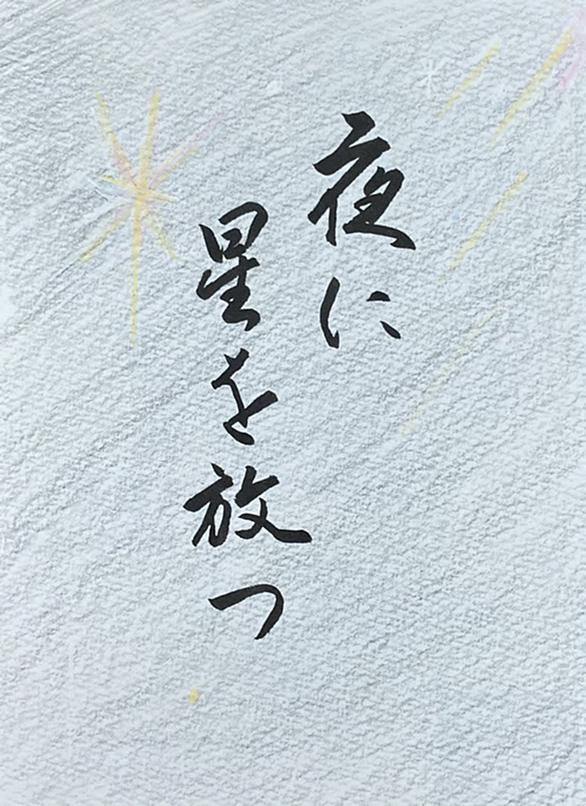 夜に
星を放つ